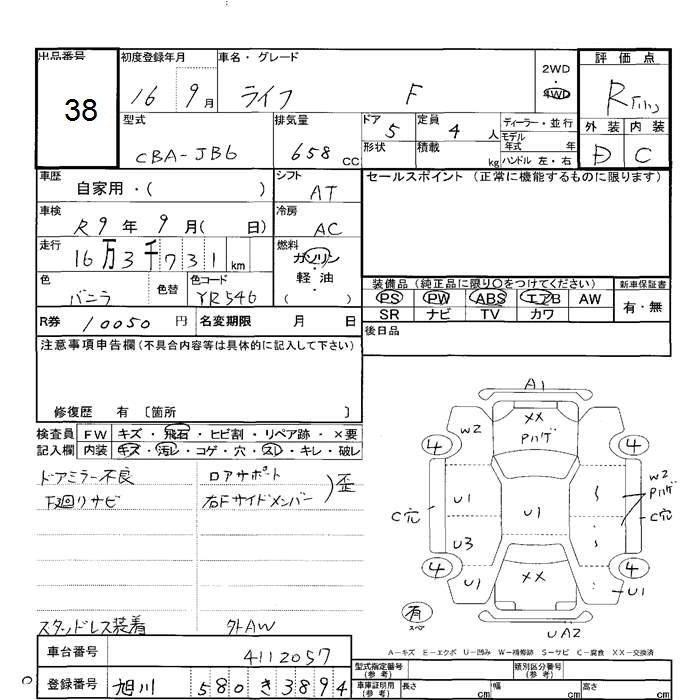 出品番号 初度登録年月 車名・グレード 評価点
38 16 9月 ライフ F 2WD ・ 4WD R
型式 排気量 ドア 定員 ディーラー・並行 外装 内装
CBA-JB6 658cc 5 4人 モデル年式 年 D C
形状 積載 kg ハンドル 左・右
車歴 自家用・( ) シフト AT セールスポイント (正常に機能するものに限ります)
車検 R9年9月( 日) 冷房 AC
走行 16万3千731km 燃料 ガソリン・軽油・( )
色 バニラ 色替 色コード YR546
装備品 (純正品に限り○をつけてください) 新車保証書
PS PW ABS エアB AW 有・無
SR ナビ TV カワ
R券 10050円 名変期限 月 日 後日品
注意事項申告欄 (不具合内容等は具体的に記入して下さい)
修復歴 有 〔箇所 〕
検査員 FW キズ・飛石・ヒビ割・リペア跡・×要
記入欄 内装 キズ・汚レ・コゲ・穴・スレ・キレ・破レ
ドアミラー不良 ロアサポート
下廻りサビ 右Fサイドメンバー ) 歪
スタッドレス装着 外AW
A1
W2 XX Pハゲ
4 4
U1 U1 W2 Pハゲ
C穴 C穴
U3
4 4
U1 XX U1
有 スペア
UA2
A-キズ E-エクボ U-凹み W-補修跡 S-サビ C-腐食 XX-交換済
車台番号 4112057
登録番号 旭川 580 き 3894
型式指定番号 (参考) 類別区分番号 (参考)
車庫証明用 (参考) 長さ cm 幅 cm 高さ cm